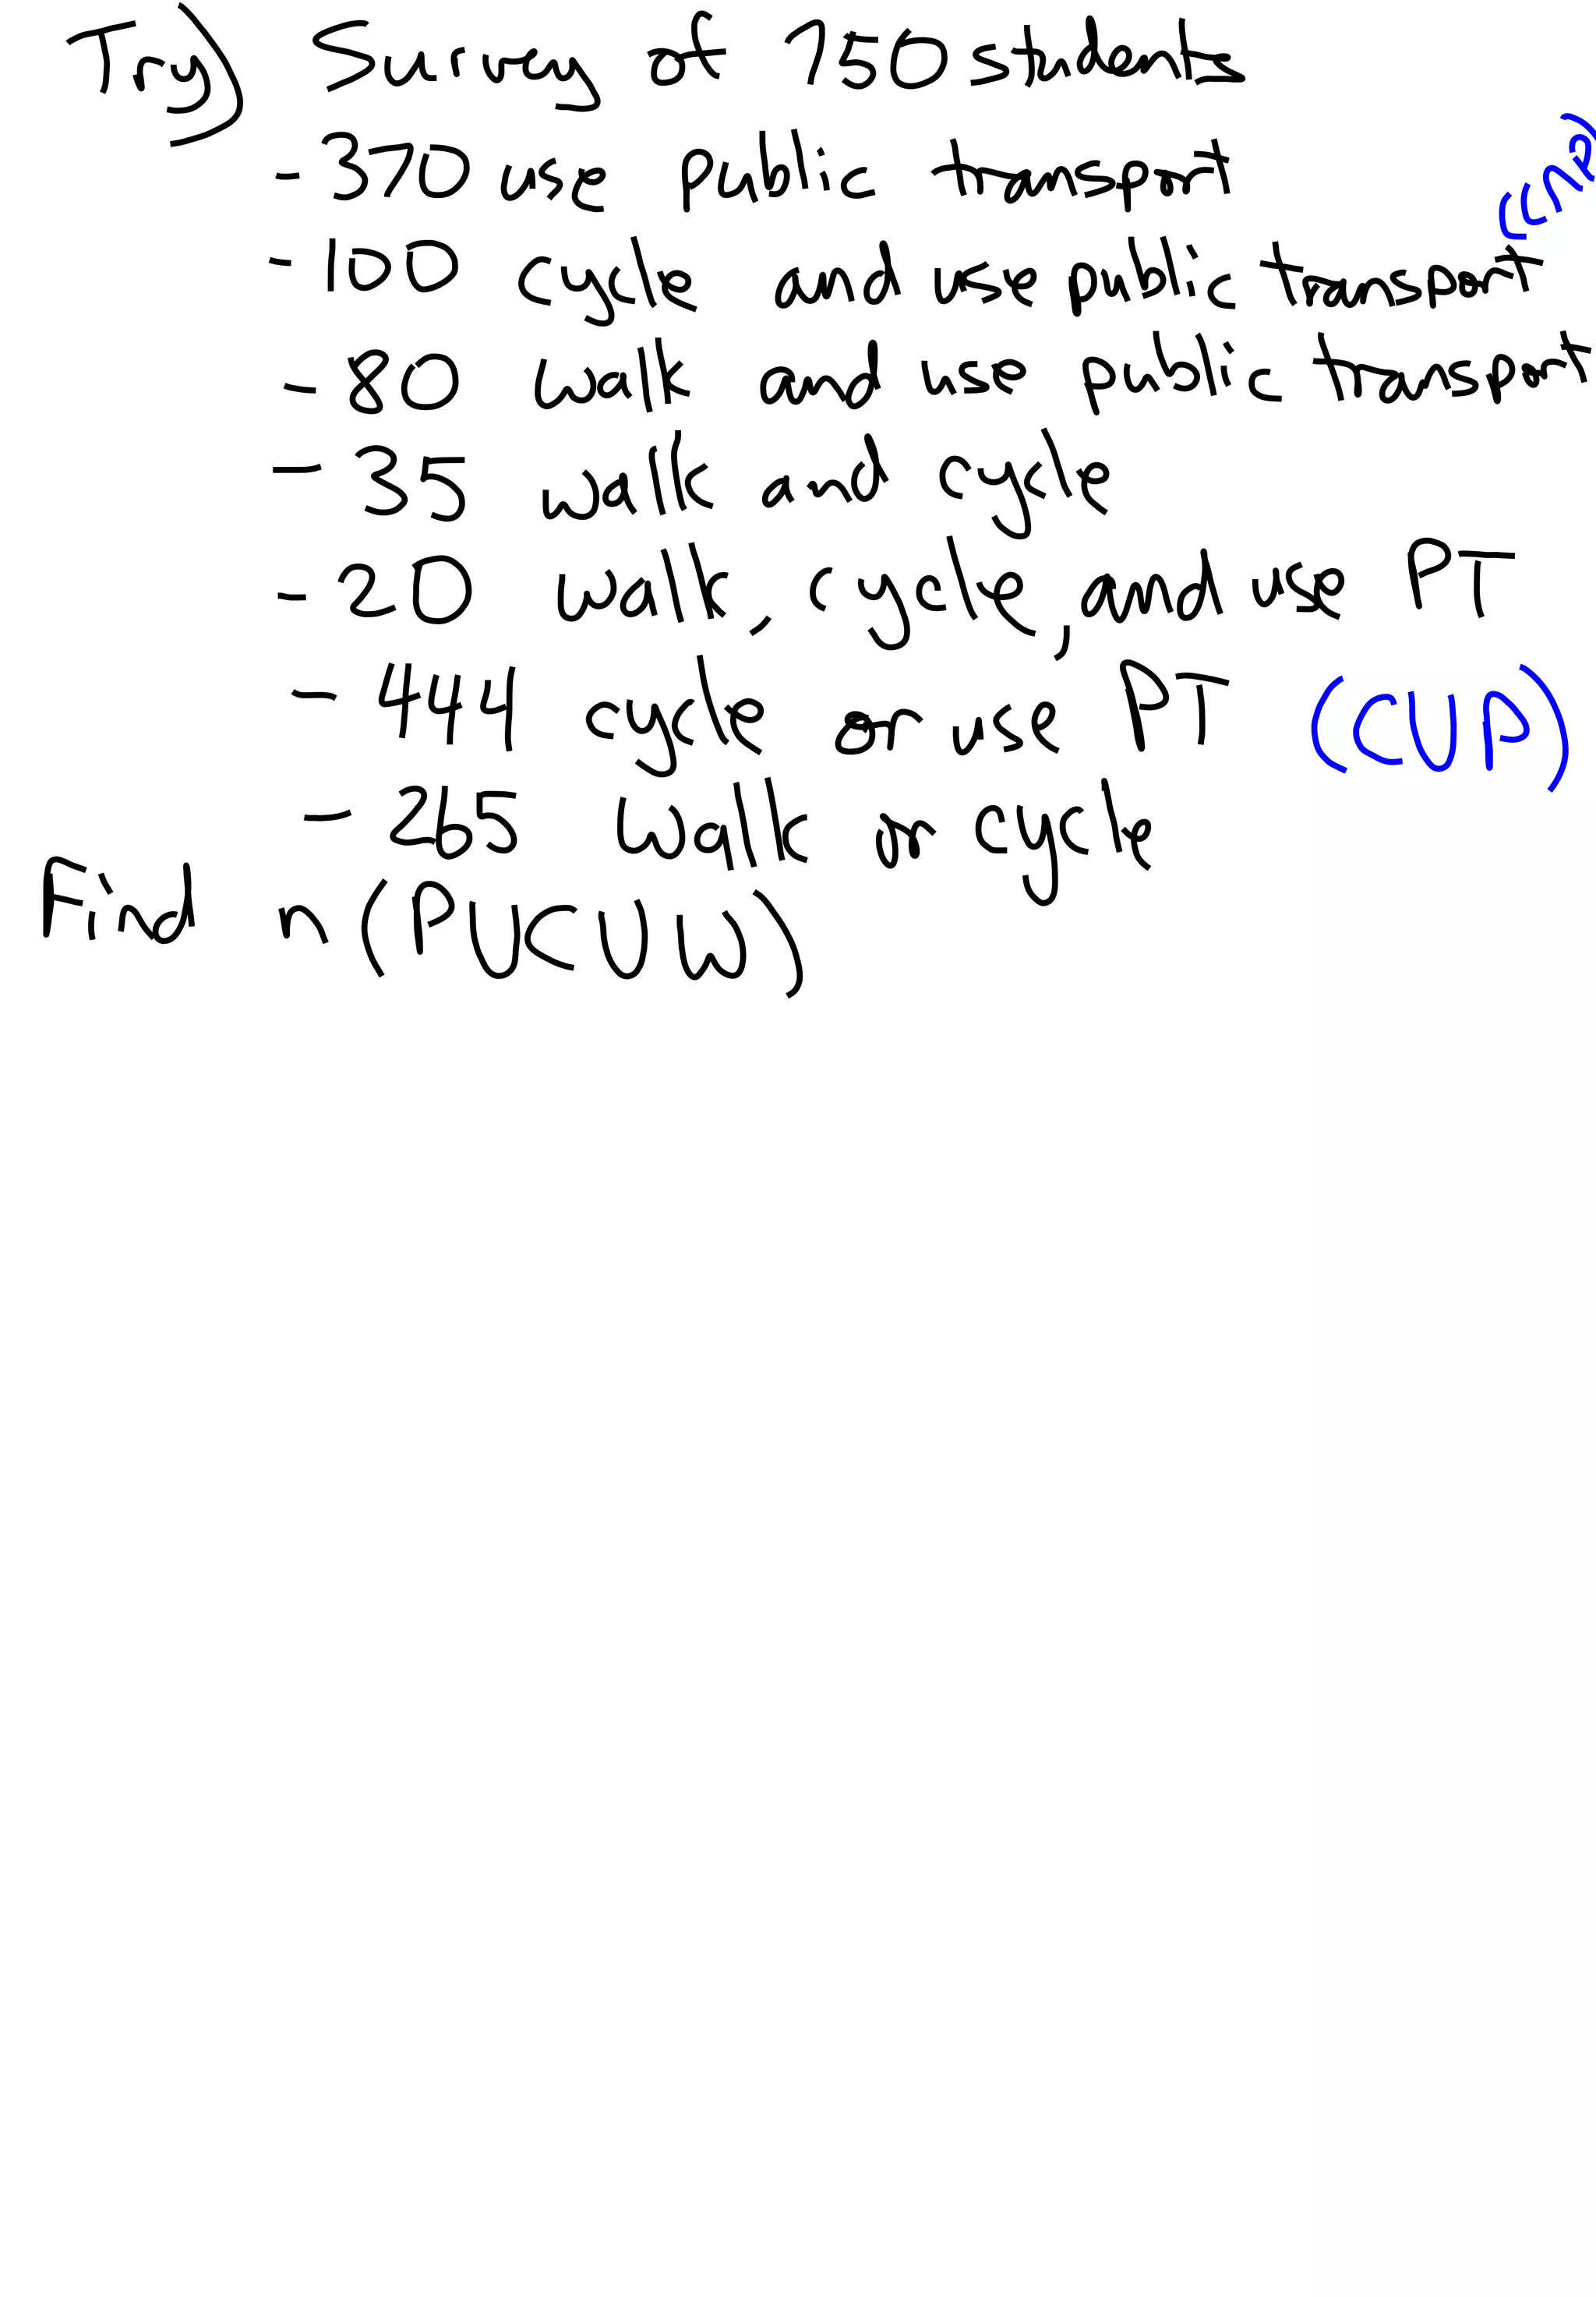 Try) Survey of 750 students
- 370 use public transport
- 100 cycle and use public transport (C∩P)
- 80 walk and use public transport
- 35 walk and cycle
- 20 walk, cycle, and use PT
- 441 cycle or use PT (C∪P)
- 265 walk or cycle
Find n(P∪C∪W)